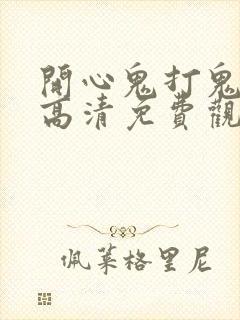 開心鬼打鬼
高清免費觀
佩萊格里尼